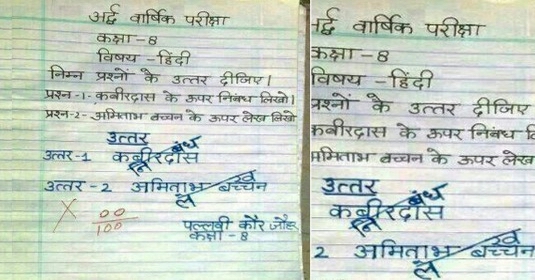 अर्द्ध वार्षिक परीक्षा
कक्षा - 8
विषय - हिंदी
निम्न प्रश्नों के उत्तर दीजिए।
प्रश्न -1- कबीरदास के ऊपर निबंध लिखो।
प्रश्न -2- अमिताभ बच्चन के ऊपर लेख लिखो
उत्तर
उत्तर -1 कबीरदास निबंध
उत्तर - 2 अमिताभ बच्चन लेख
X 00
100
पल्लवी कौर जौहर
कक्षा - 8
र्द्ध वार्षिक परीक्षा
कक्षा - 8
विषय - हिंदी
प्रश्नों के उत्तर दीजिए
कबीरदास के ऊपर निबंध लि
अमिताभ बच्चन के ऊपर लेख
उत्तर
कबीरदास निबंध
2 अमिताभ बच्चन लेख